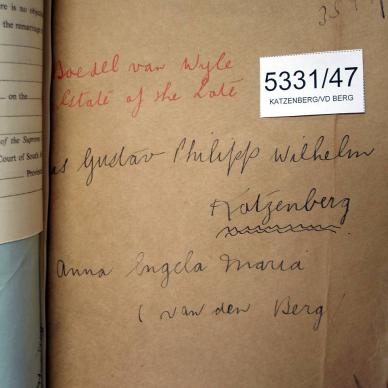 ere is no objec
the remarriag
on the
of the Supreme
Court of South A
Provinci
35
Boedel van Wyle
Estate of the Late
5331/47
KATZENBERG/VD BERG
as Gustav Philipp Wilhelm
Katzenberg
Anna Engela Maria
(van den Berg)